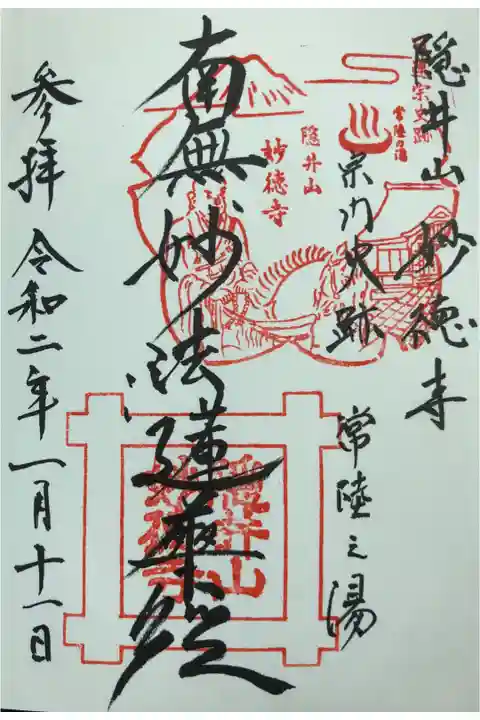 隠井山 妙徳寺
宗門史跡 常陸之湯
南無妙法蓮華経
参拝 令和二年一月十一日
宗史跡
常陸の湯
隠井山
妙徳寺
隠井山
妙徳寺